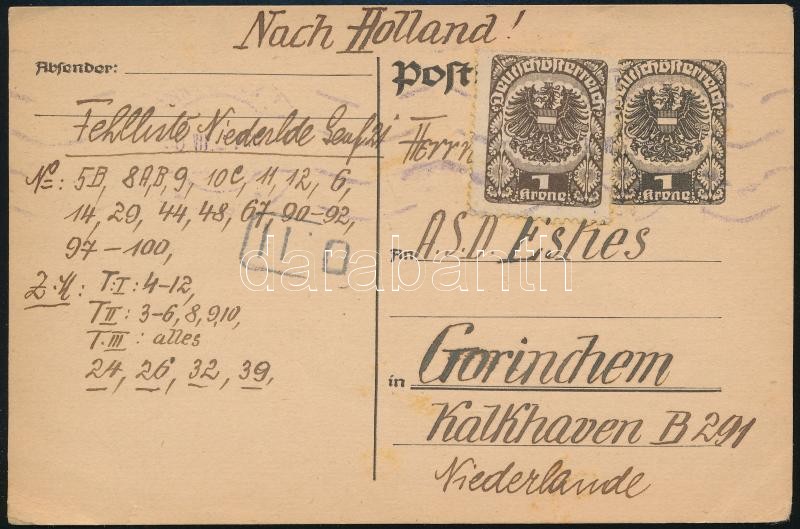 Nach Holland!
Absender:
Post
Deutschösterreich
1
Krone
Deutschösterreich
1
Krone
Fehlliste Niederlde Senf 21
No: 5B, 8A,B,9, 10C, 11, 12, 6,
14, 29, 44, 48, 67, 90-92,
97-100,
Z.M: T:I: 4-12,
T II: 3-6, 8, 9, 10,
T. III: alles
24, 26, 32, 39,
Herrn
An A.S.D. Eskes
in Gorinchem
Kalkhaven B 291
Niederlande
darabanth